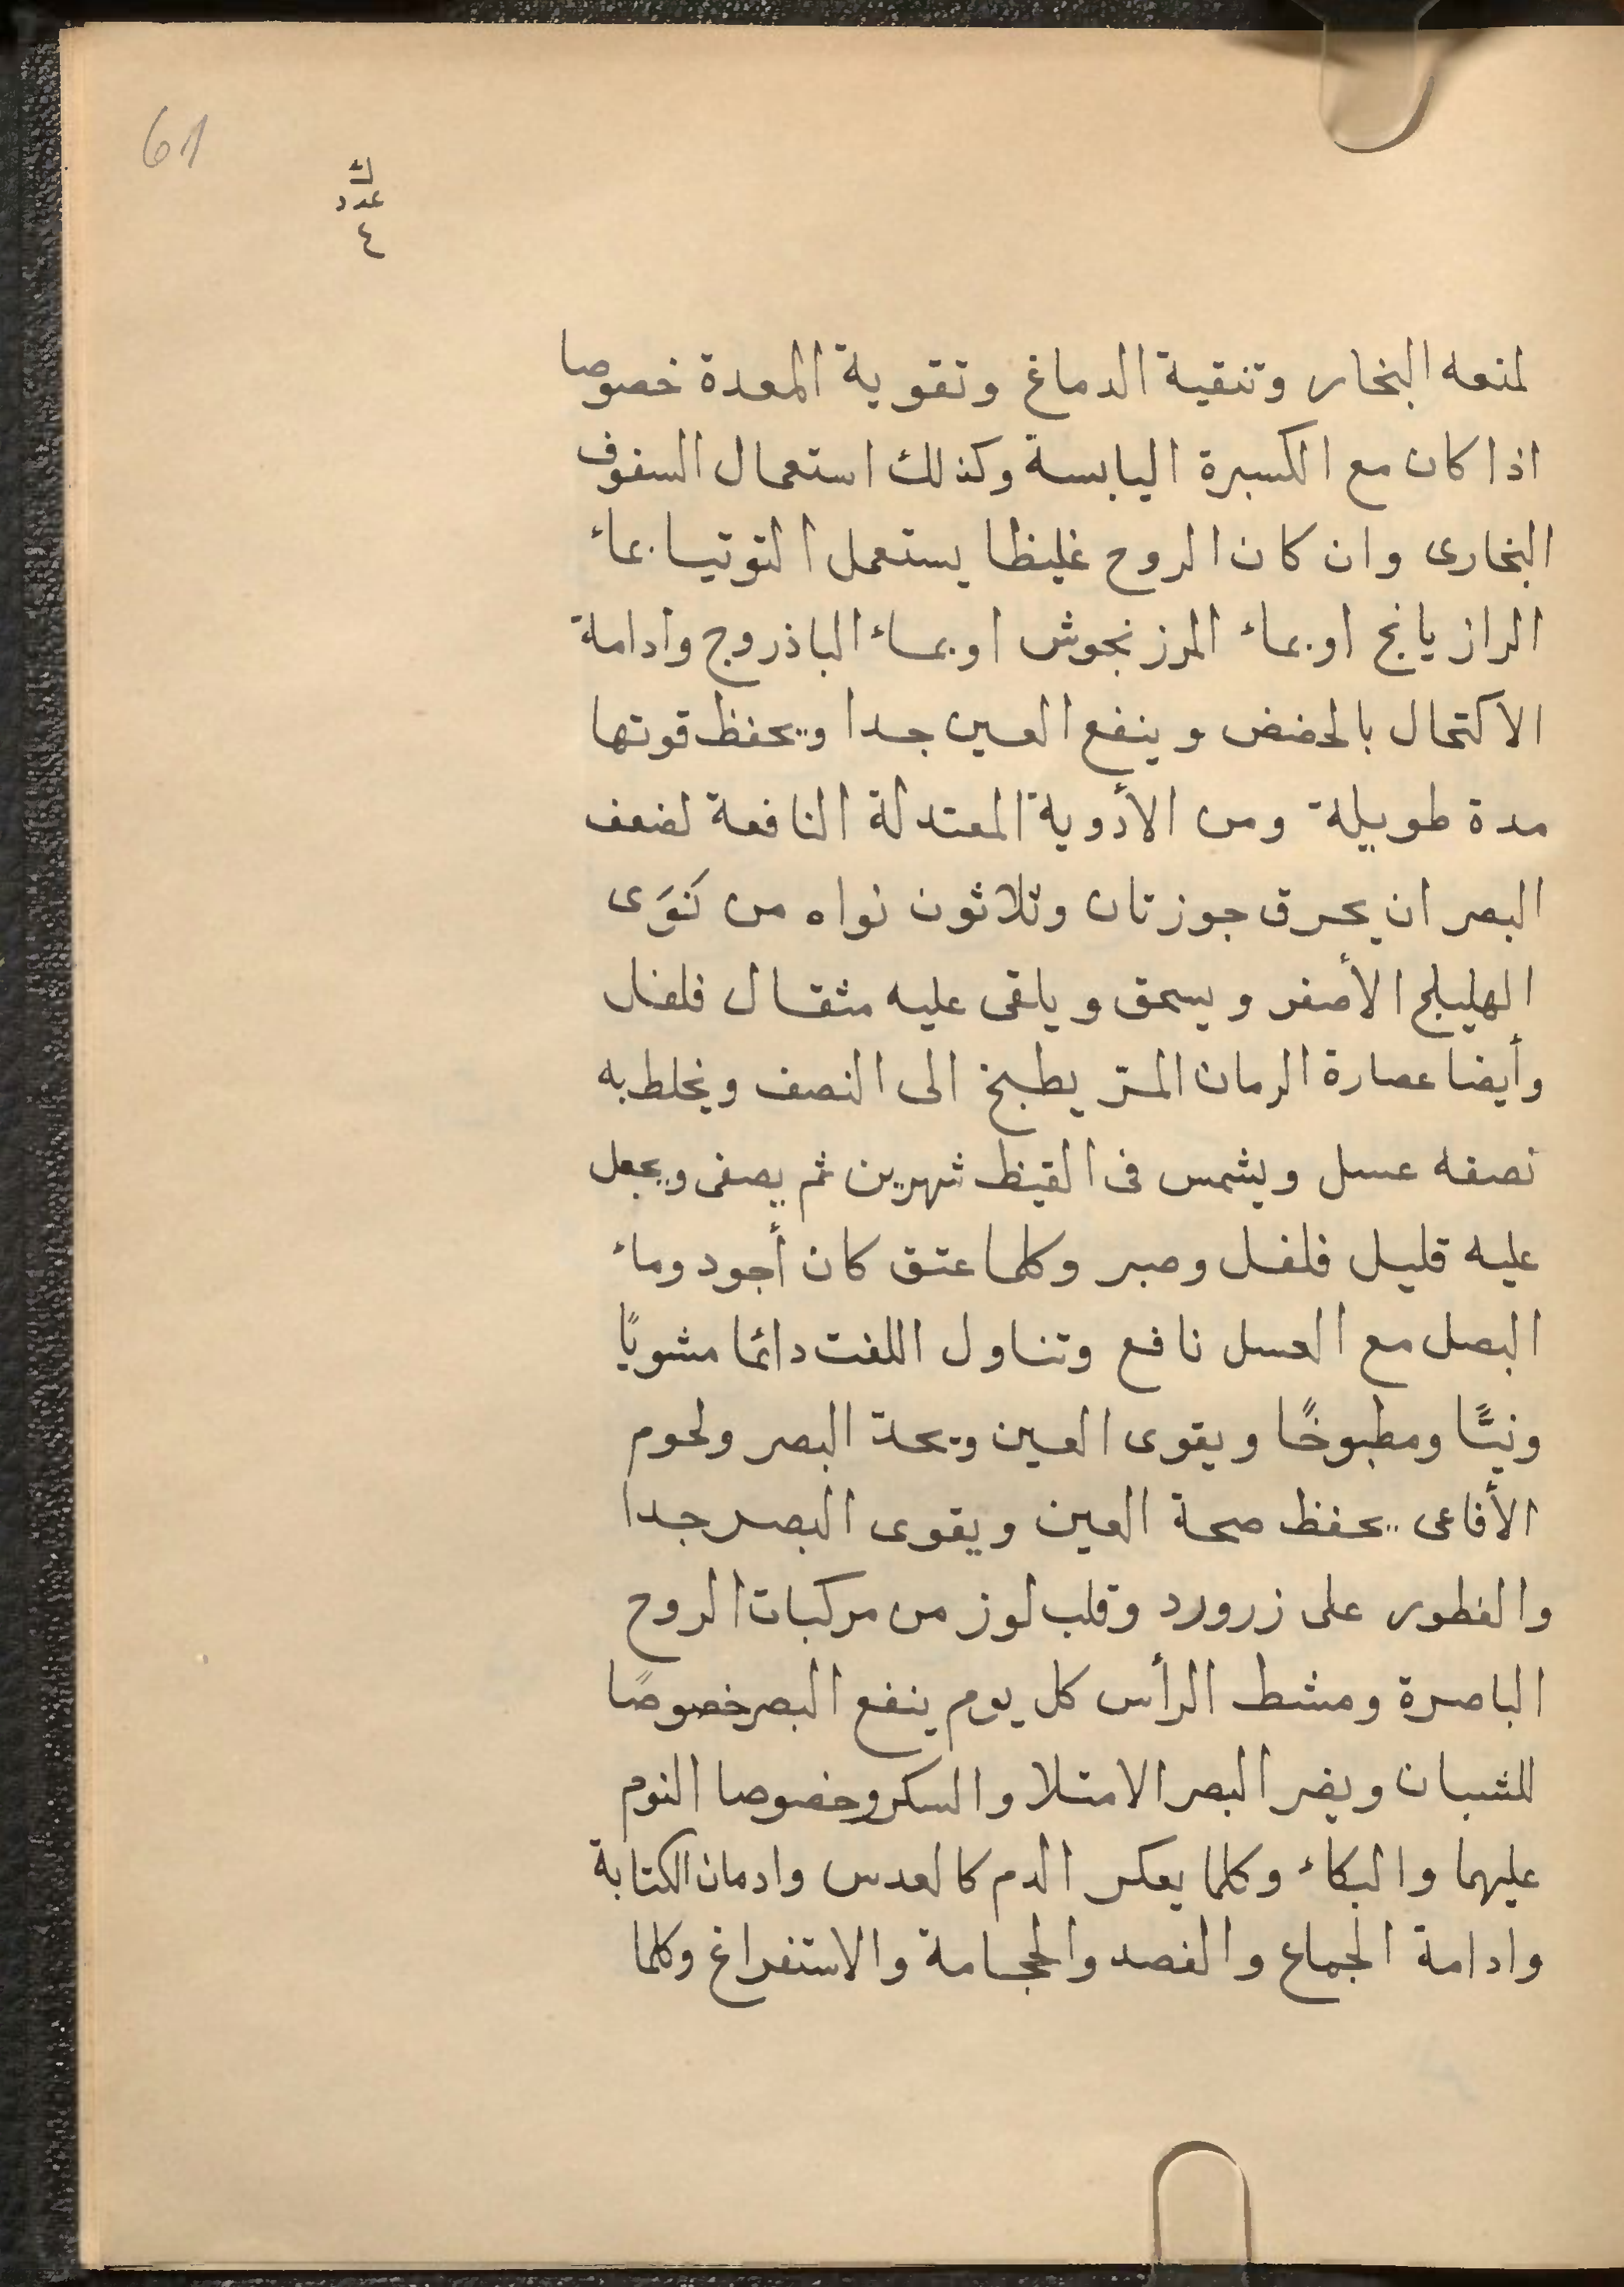 61
ك
عدد
٤
لمنعه البخار وتنقية الدماغ وتقوية المعدة خصوصا
اذا كان مع الكسبرة اليابسة وكذلك استعمال السفوف
البخارى وان كان الروح غليظا يستعمل التوتيا بماء
الرازيانج او بماء المرزنجوش او بماء الباذروج وادامة
الاكتحال بالحضض وينفع العين جدا ويحفظ قوتها
مدة طويلة ومن الأدوية المعتدلة النافعة لضعف
البصر ان يحرق جوزتان وثلاثون نواه من نَوَى
الهليلج الأصفر ويسحق ويلقى عليه مثقال فلفل
وأيضا عصارة الرمان المز يطبخ الى النصف ويخلط به
نصفه عسل ويشمس فى القيظ شهرين ثم يصفى ويجعل
عليه قليل فلفل وصبر وكلما عتق كان أجود وماء
البصل مع العسل نافع وتناول اللفت دائما مشويًا
ونيًّا ومطبوخًا ويقوى العين ويحدّ البصر ولحوم
الأفاعى يحفظ صحة العين ويقوى البصر جدا
والفطور على زرورد وقلب لوز من مركبات الروح
الباصرة ومشط الرأس كل يوم ينفع البصر خصوصًا
للشبان ويضر البصر الامتلا والسكر وخصوصا النوم
عليهما والبكاء وكلما يعكر الدم كالعدس وادمان الكتابة
وادامة الجماع والفصد والحجامة والاستفراغ وكلما